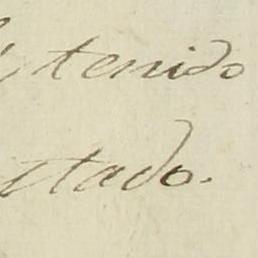 tenido
stado.